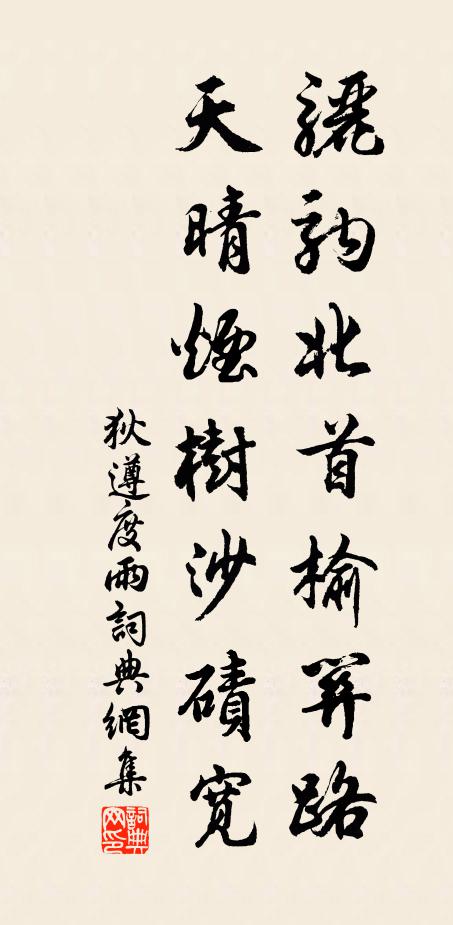 驪駒北首榆關路
天晴煙樹沙磧寬
狄遵度雨詞典網集
詞典網印